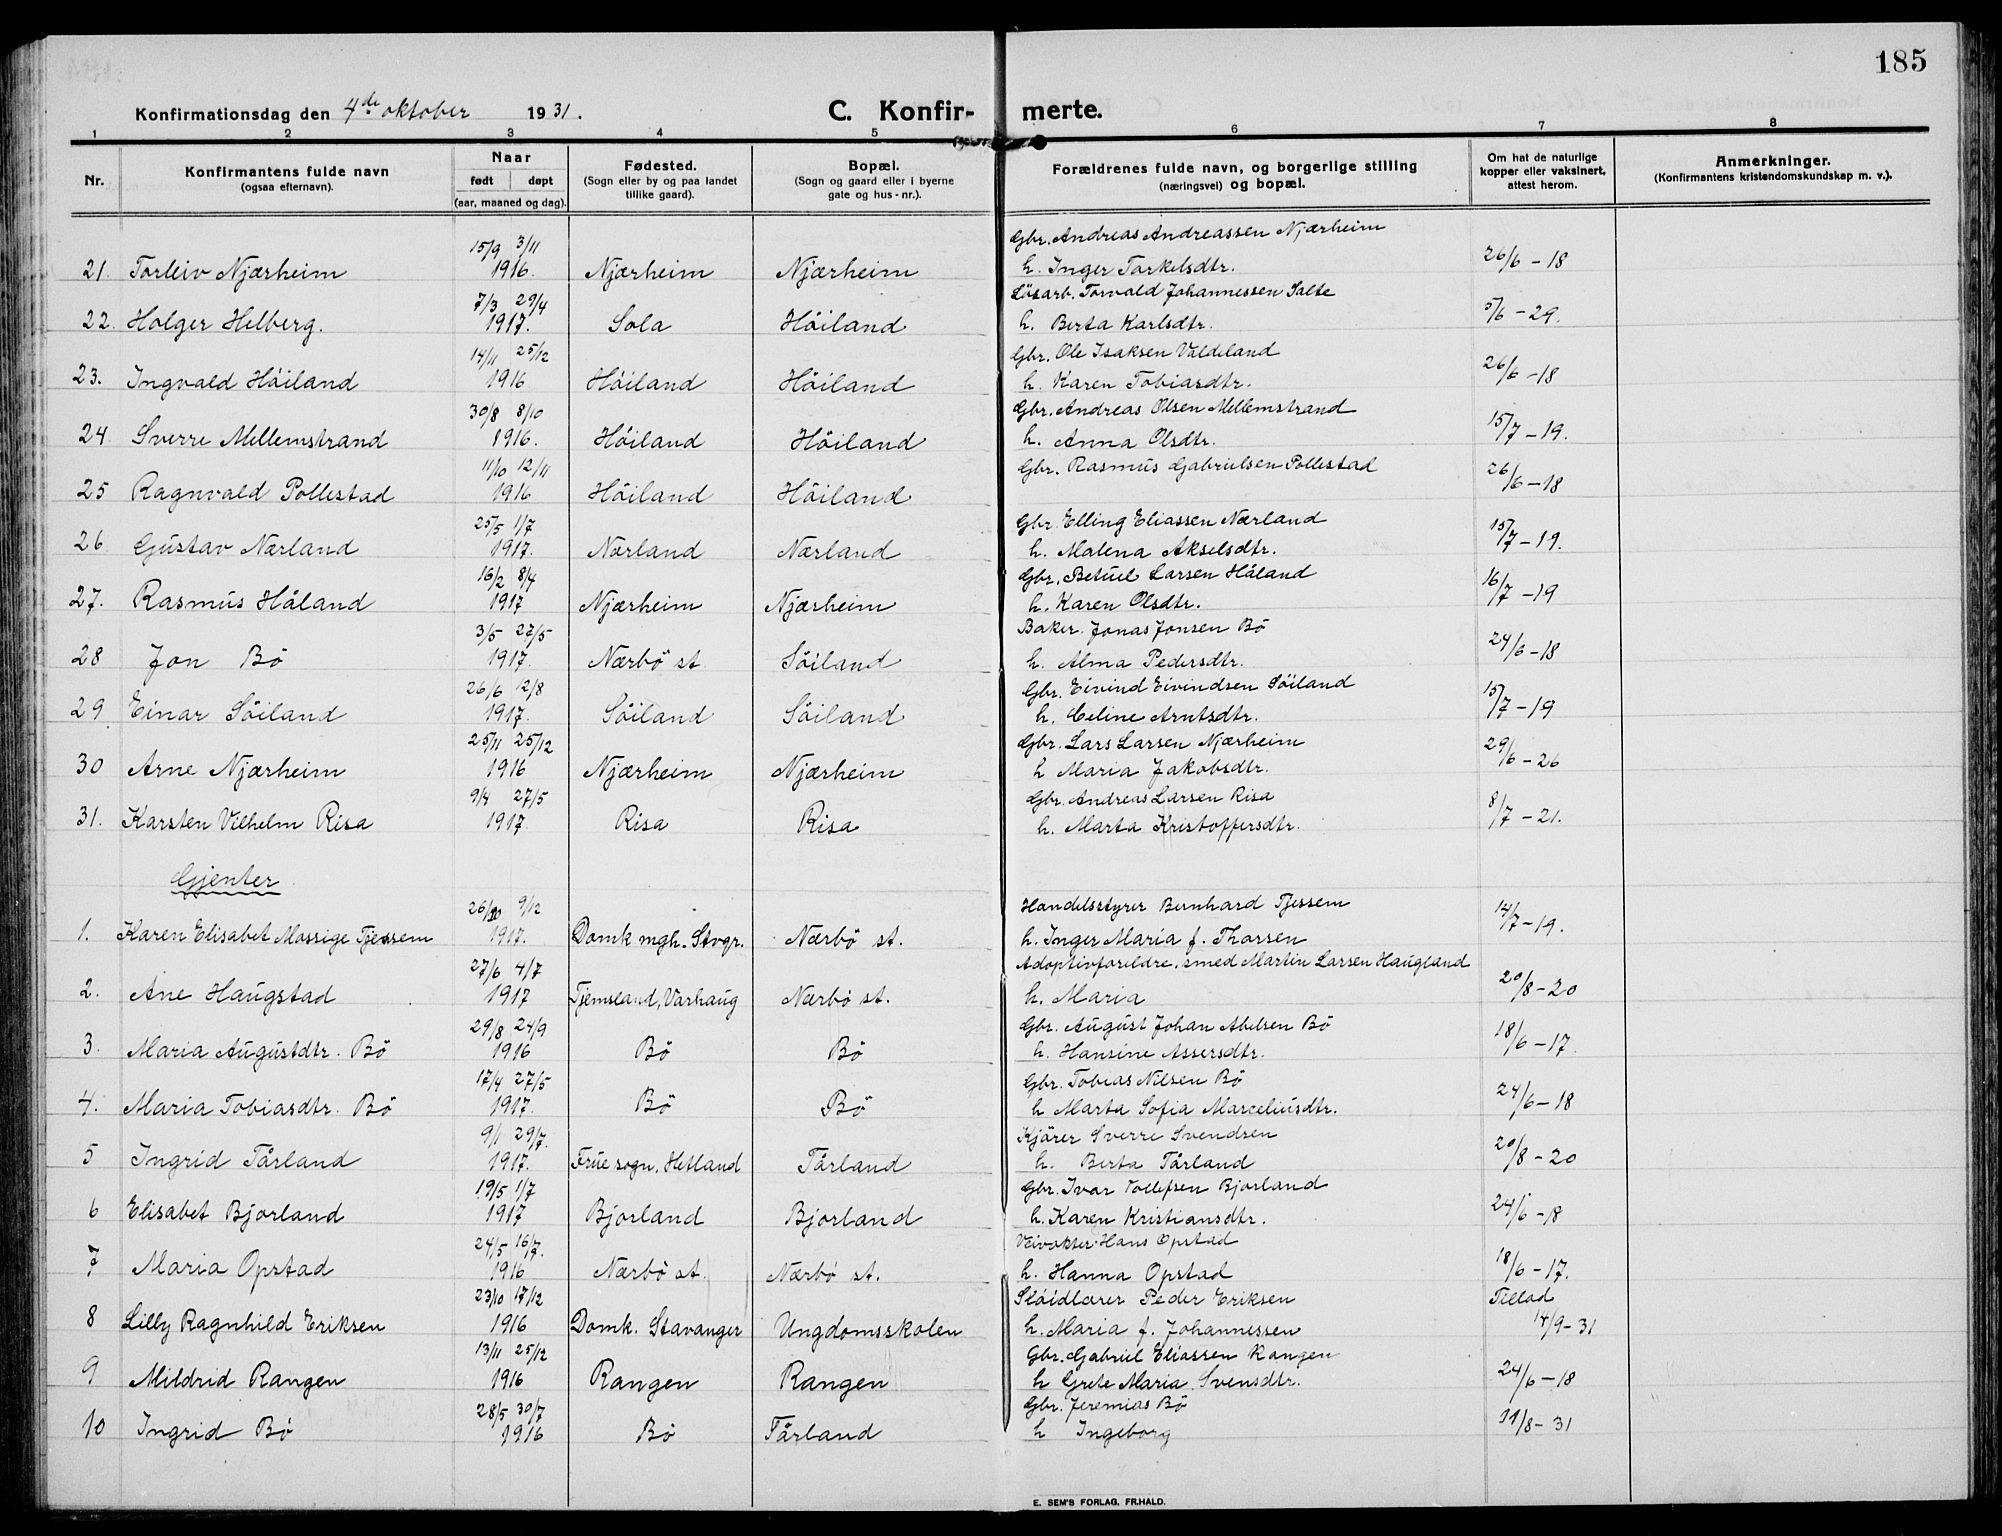 185
Konfirmationsdag den 4de oktober 1931.
C. Konfir-merte.
1 2 3 4 5 6 7 8
Nr. Konfirmantens fulde navn (ogsaa efternavn). Naar født døpt (aar, maaned og dag). Fødested. (Sogn eller by og paa landet tillike gaard). Bopæl. (Sogn og gaard eller i byerne gate og hus-nr.). Forældrenes fulde navn, og borgerlige stilling (næringsvei) og bopæl. Om hat de naturlige kopper eller vaksinert, attest herom. Anmerkninger. (Konfirmantens kristendomskundskap m. v.).
15/9 3/11 Gbr. Andreas Andreassen Njærheim
21. Torleiv Njærheim 1916. Njærheim Njærheim h. Inger Torkelsdtr. 26/6 - 18
7/3 29/4 Løsarb. Torvald Johannessen Salte
22. Holger Helberg. 1917. Sola Höiland h. Berta Karlsdtr. 5/6 - 29.
14/11 25/12 Gbr. Ole Isaksen Valdeland
23. Ingvald Höiland 1916 Höiland Höiland h. Karen Tobiasdtr. 26/6 - 18
30/8 8/10 Gbr. Andreas Olsen Mellemstrand
24 Sverre Mellemstrand 1916. Höiland Höiland h. Anna Olsdtr. 15/7 - 19.
11/10 12/11 Gbr. Rasmus Gabrielsen Pollestad
25 Ragnvald Pollestad 1916 Höiland Höiland 26/6 - 18
25/5 1/7 Gbr. Elling Eliassen Nærland
26 Gustav Nærland 1917. Nærland Nærland h. Malena Akselsdtr. 15/7 - 19.
16/2 8/4 Gbr. Betuel Larsen Håland
27. Rasmus Håland 1917 Njærheim Njærheim h. Karen Olsdtr. 16/7 - 19
3/5 27/5 Baker. Jonas Jonsen Bö
28 Jon Bö 1917. Nærbö st. Söiland h. Alma Pedersdtr. 24/6 - 18
26/6 12/8 Gbr. Eivind Eivindsen Söiland
29 Einar Söiland 1917. Söiland Söiland h. Celine Arntsdtr. 15/7 - 19
25/11 25/12 Gbr. Lars Larsen Njærheim
30 Arne Njærheim 1916 Njærheim Njærheim h Maria Jakobsdtr. 29/6 - 26
9/4 27/5 Gbr. Andreas Larsen Risa
31. Karsten Vilhelm Risa 1917. Risa Risa h. Marta Kristoffersdtr. 8/7 - 21.
Gjenter
26/10 9/12 Handelsstyrer Bernhard Tjessem
1. Karen Elisabet Mossige Tjessem 1917. Domk mgh. Stvgr. Nærbö st. h. Inger Maria f. Thorsen 14/7 - 19.
27/6 4/7 Adoptivforeldre, smed Martin Larsen Haugland
2. Ane Haugstad 1917 Tjemsland, Varhaug Nærbö st. h. Maria 20/8 - 20
29/8 24/9 Gbr. August Johan Abelsen Bö
3. Maria Augustdtr. Bö 1916 Bö Bö h. Hansine Assersdtr. 18/6 - 17.
17/4 27/5 Gbr. Tobias Nilsen Bö
4. Maria Tobiasdtr. Bö 1917. Bö Bö h Marta Sofia Marceliusdtr. 24/6 - 18
9/1 29/7. Kjörer Sverre Svendsen
5 Ingrid Tårland 1917. Frue sogn, Hetland Tårland h. Berta Tårland 20/8 - 20
19/5 1/7 Gbr. Ivar Tollefsen Bjorland
6 Elisabet Bjorland 1917 Bjorland Bjorland h. Karen Kristiansdtr. 24/6 - 18
24/5 16/7. Veivokter Hans Opstad
7 Maria Opstad 1916 Nærbö st. Nærbö st. h. Hanna Opstad 18/6 - 17.
23/10 17/12 Slöidlærer Peder Eriksen Tillad
8 Lilly Ragnhild Eriksen 1916 Domk. Stavanger Ungdomsskolen h. Maria f. Johannessen 14/9 - 31
13/11 25/12 Gbr. Gabriel Eliassen Rangen
9 Mildrid Rangen 1916 Rangen Rangen h Grete Maria Svensdtr. 24/6 - 18
28/5 30/7 Gbr. Jeremias Bö
10 Ingrid Bö 1916 Bö Tårland h Ingeborg 11/8 - 31
E. SEM'S FORLAG, FR.HALD.